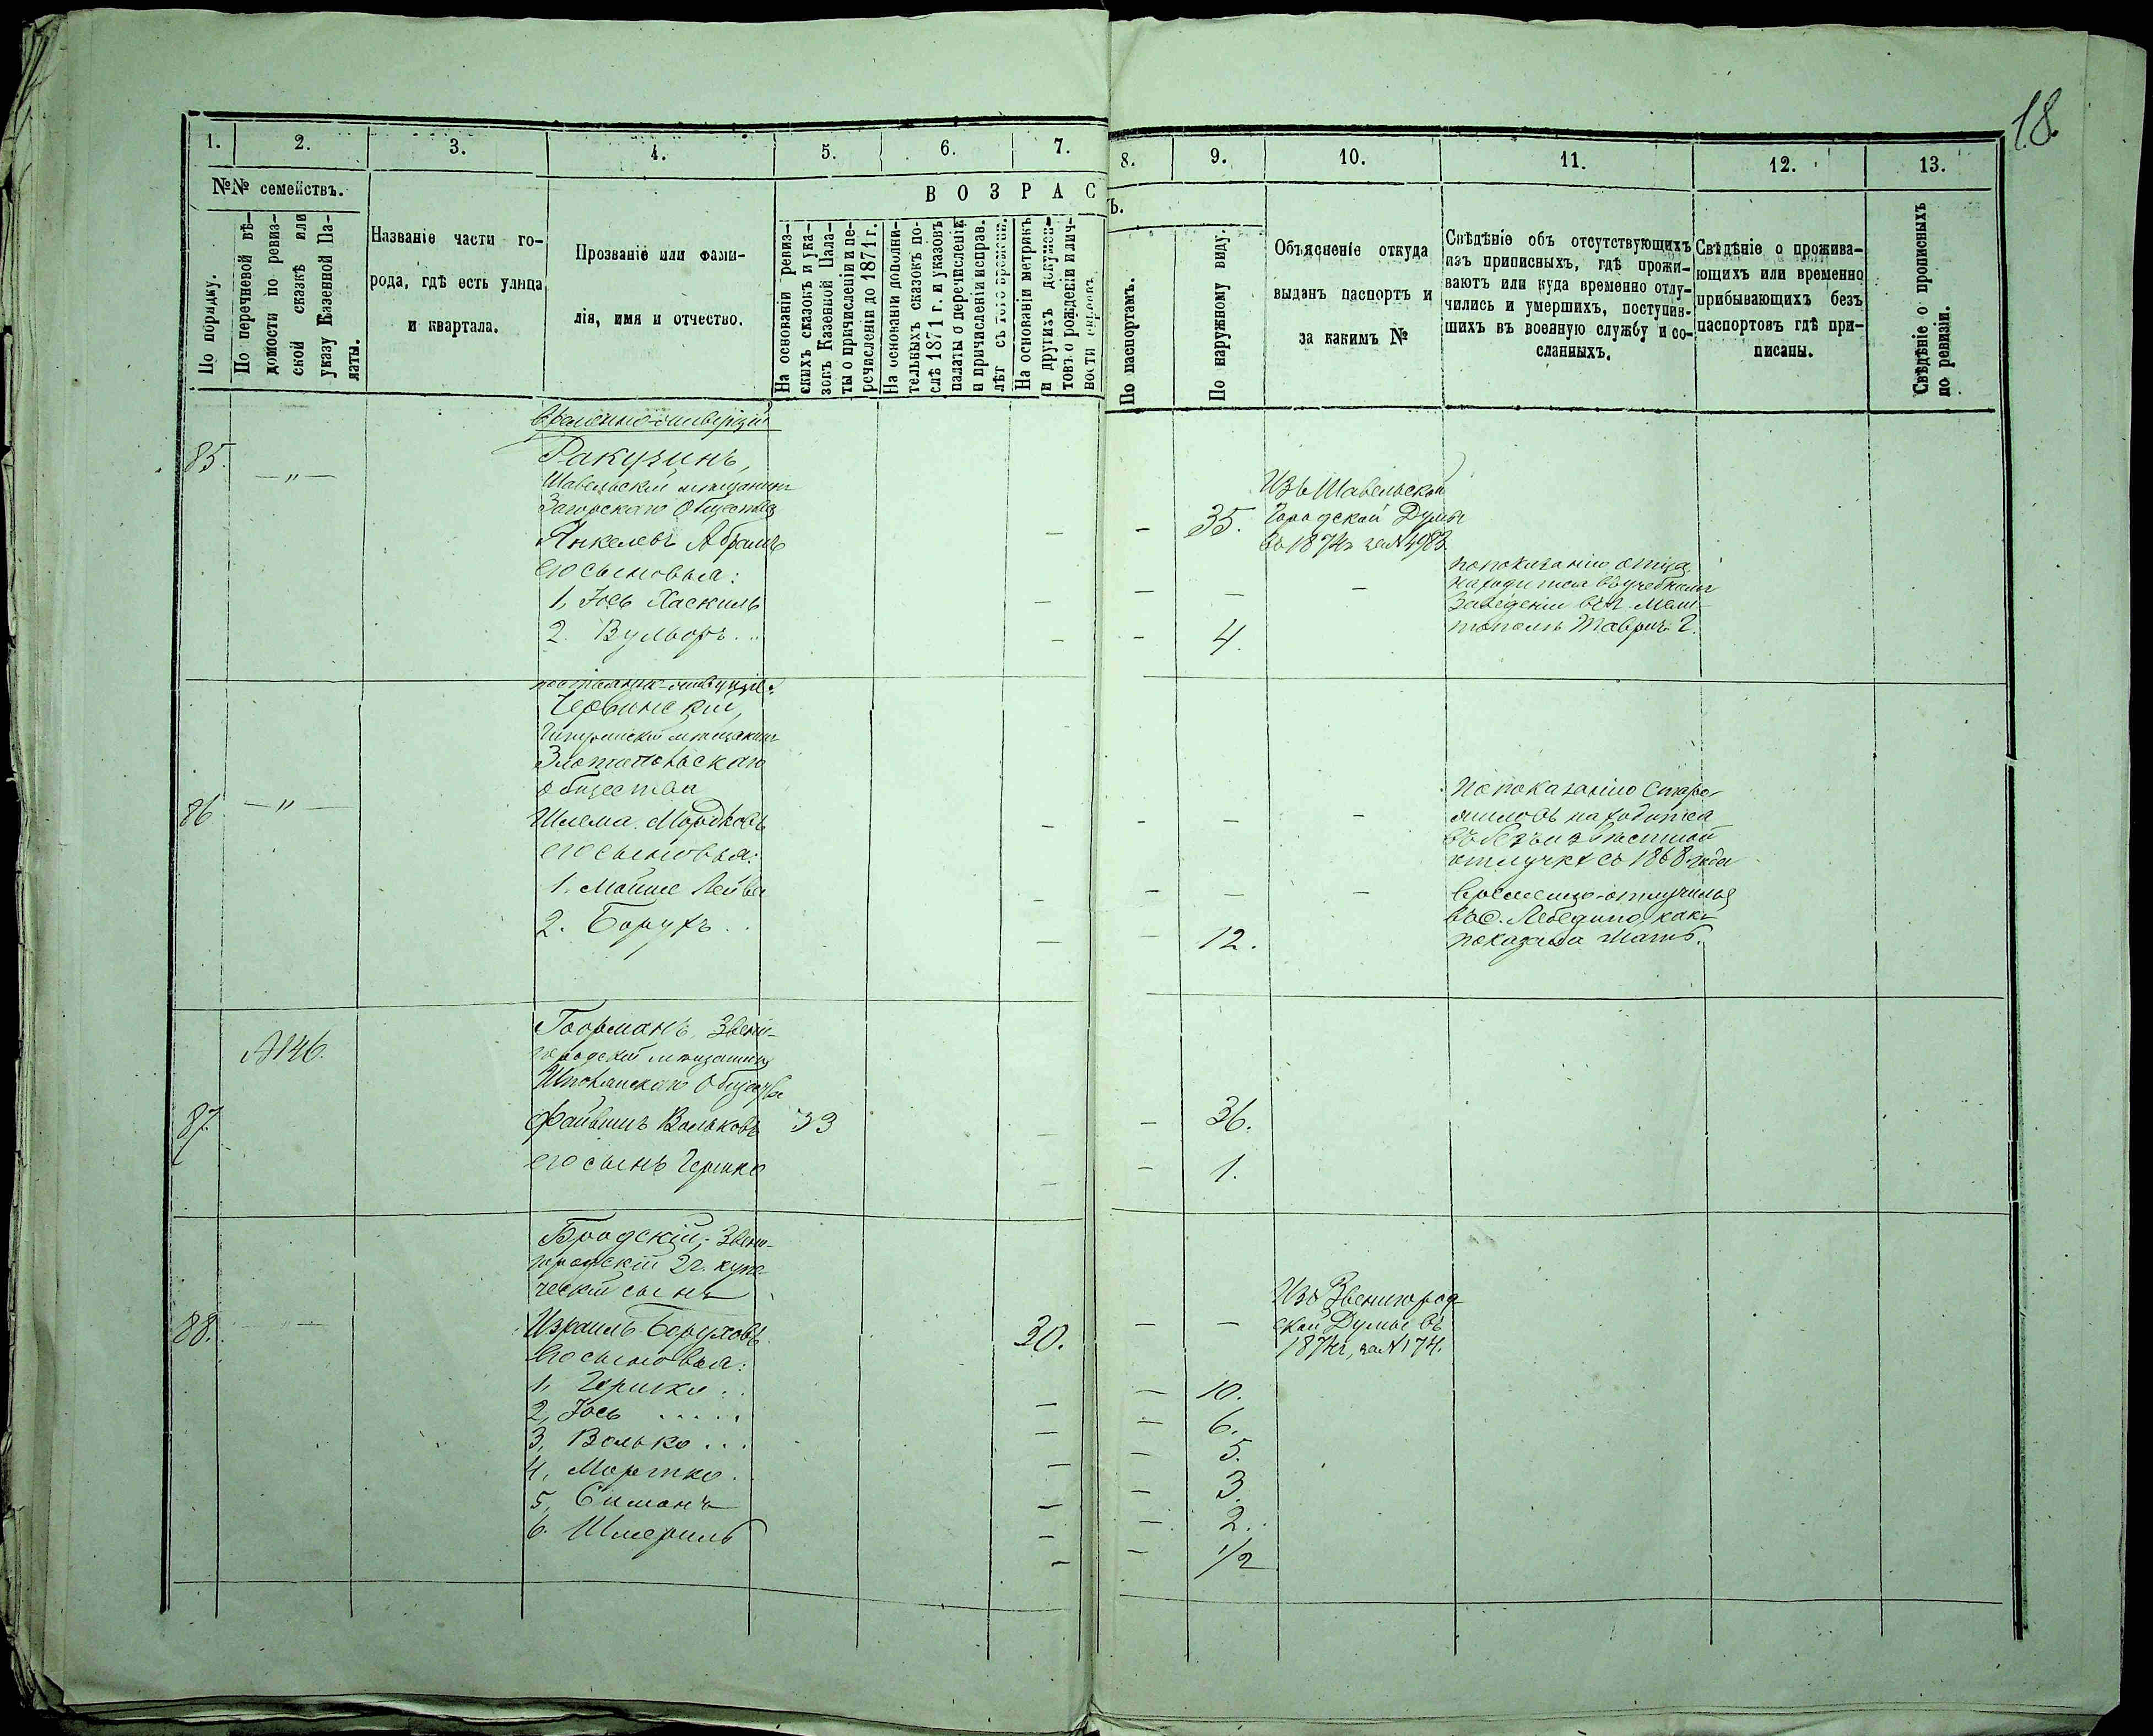 18.
1.
2.
3.
4.
5.
6.
7.
8.
9.
10.
11.
12.
13.
№№ семействъ.
По порядку.
По перечневой вѣ-
домости по ревиз-
ской сказкѣ или
указу Казенной Па-
латы.
Названіе части го-
рода, гдѣ есть улица
и квартала.
Прозваніе или фами-
лія, имя и отчество.
ВОЗРАС
Ъ.
На основаніи ревиз-
скихъ сказокъ и ука-
зовъ Казенной Пала-
ты о причисленіи и пе-
речисленіи до 1871 г.
На основаніи дополни-
тельныхъ сказокъ по-
слѣ 1871 г. и указовъ
палаты о перечисленіи
и причисленіи исправ.
лѣт съ того времени.
На основаніи метрикъ
и другихъ докумен-
товъ о рожденіи и лич-
ности справокъ.
По паспортамъ.
По наружному виду.
Объясненіе откуда
выданъ паспортъ и
за какимъ №
Свѣдѣніе объ отсутствующихъ
изъ приписныхъ, гдѣ прожи-
ваютъ или куда временно отлу-
чились и умершихъ, поступив-
шихъ въ военную службу и со-
сланныхъ.
Свѣдѣніе о прожива-
ющихъ или временно
прибывающихъ безъ
паспортовъ гдѣ при-
писаны.
Свѣдѣніе о прописныхъ
по ревизіи.
временно-живущій
85. — „ —
Ракузинъ,
Шавельскій мѣщанинъ
Загорскаго Общества
Янкелевъ Абрамъ — — 35.
Изъ Шавельской
Городской Думы
въ 1874 г за № 4983
его сыновья:
1, Іось Хаскиль — — — —
2. Вульворъ .. — — 4.
по показанію отца
находится въ учебномъ
заведеніи въ г. Мели-
тополѣ Таврич. Г.
Червинскій,
Чигиринскій мѣщанинъ
Златопольскаго
общества
86 — „ —
Шлема Мордковъ — — — —
его сыновья:
1. Мойше Лейба — — — —
2. Борухъ .. — — 12.
По показанію Старо-
жиловъ находится
въ безъизвѣстной
отлучкѣ съ 1868 года
Временно-отлучилья
въ с. Лебедино какъ
показала мать.
№146.
Гофманъ, Звени-
городскій мѣщанинъ
Шполянскаго Общества
87
Файвишъ Вольковъ 33 — — 36.
его сынъ Гершко — — 1.
Бродскій, Звени-
городскій 2 г. купе-
ческій сынъ
88.
Израиль Боруховъ 30. — —
Изъ Звенигород-
ской Думы въ
1874 г, за № 174.
Его сыновья:
1, Гершко .. — — 10.
2, Іось ..... — — 6.
3, Волько ... — — 5.
4, Мортко . — — 3.
5, Симонъ — — 2.
6. Шмериль — — 1/2